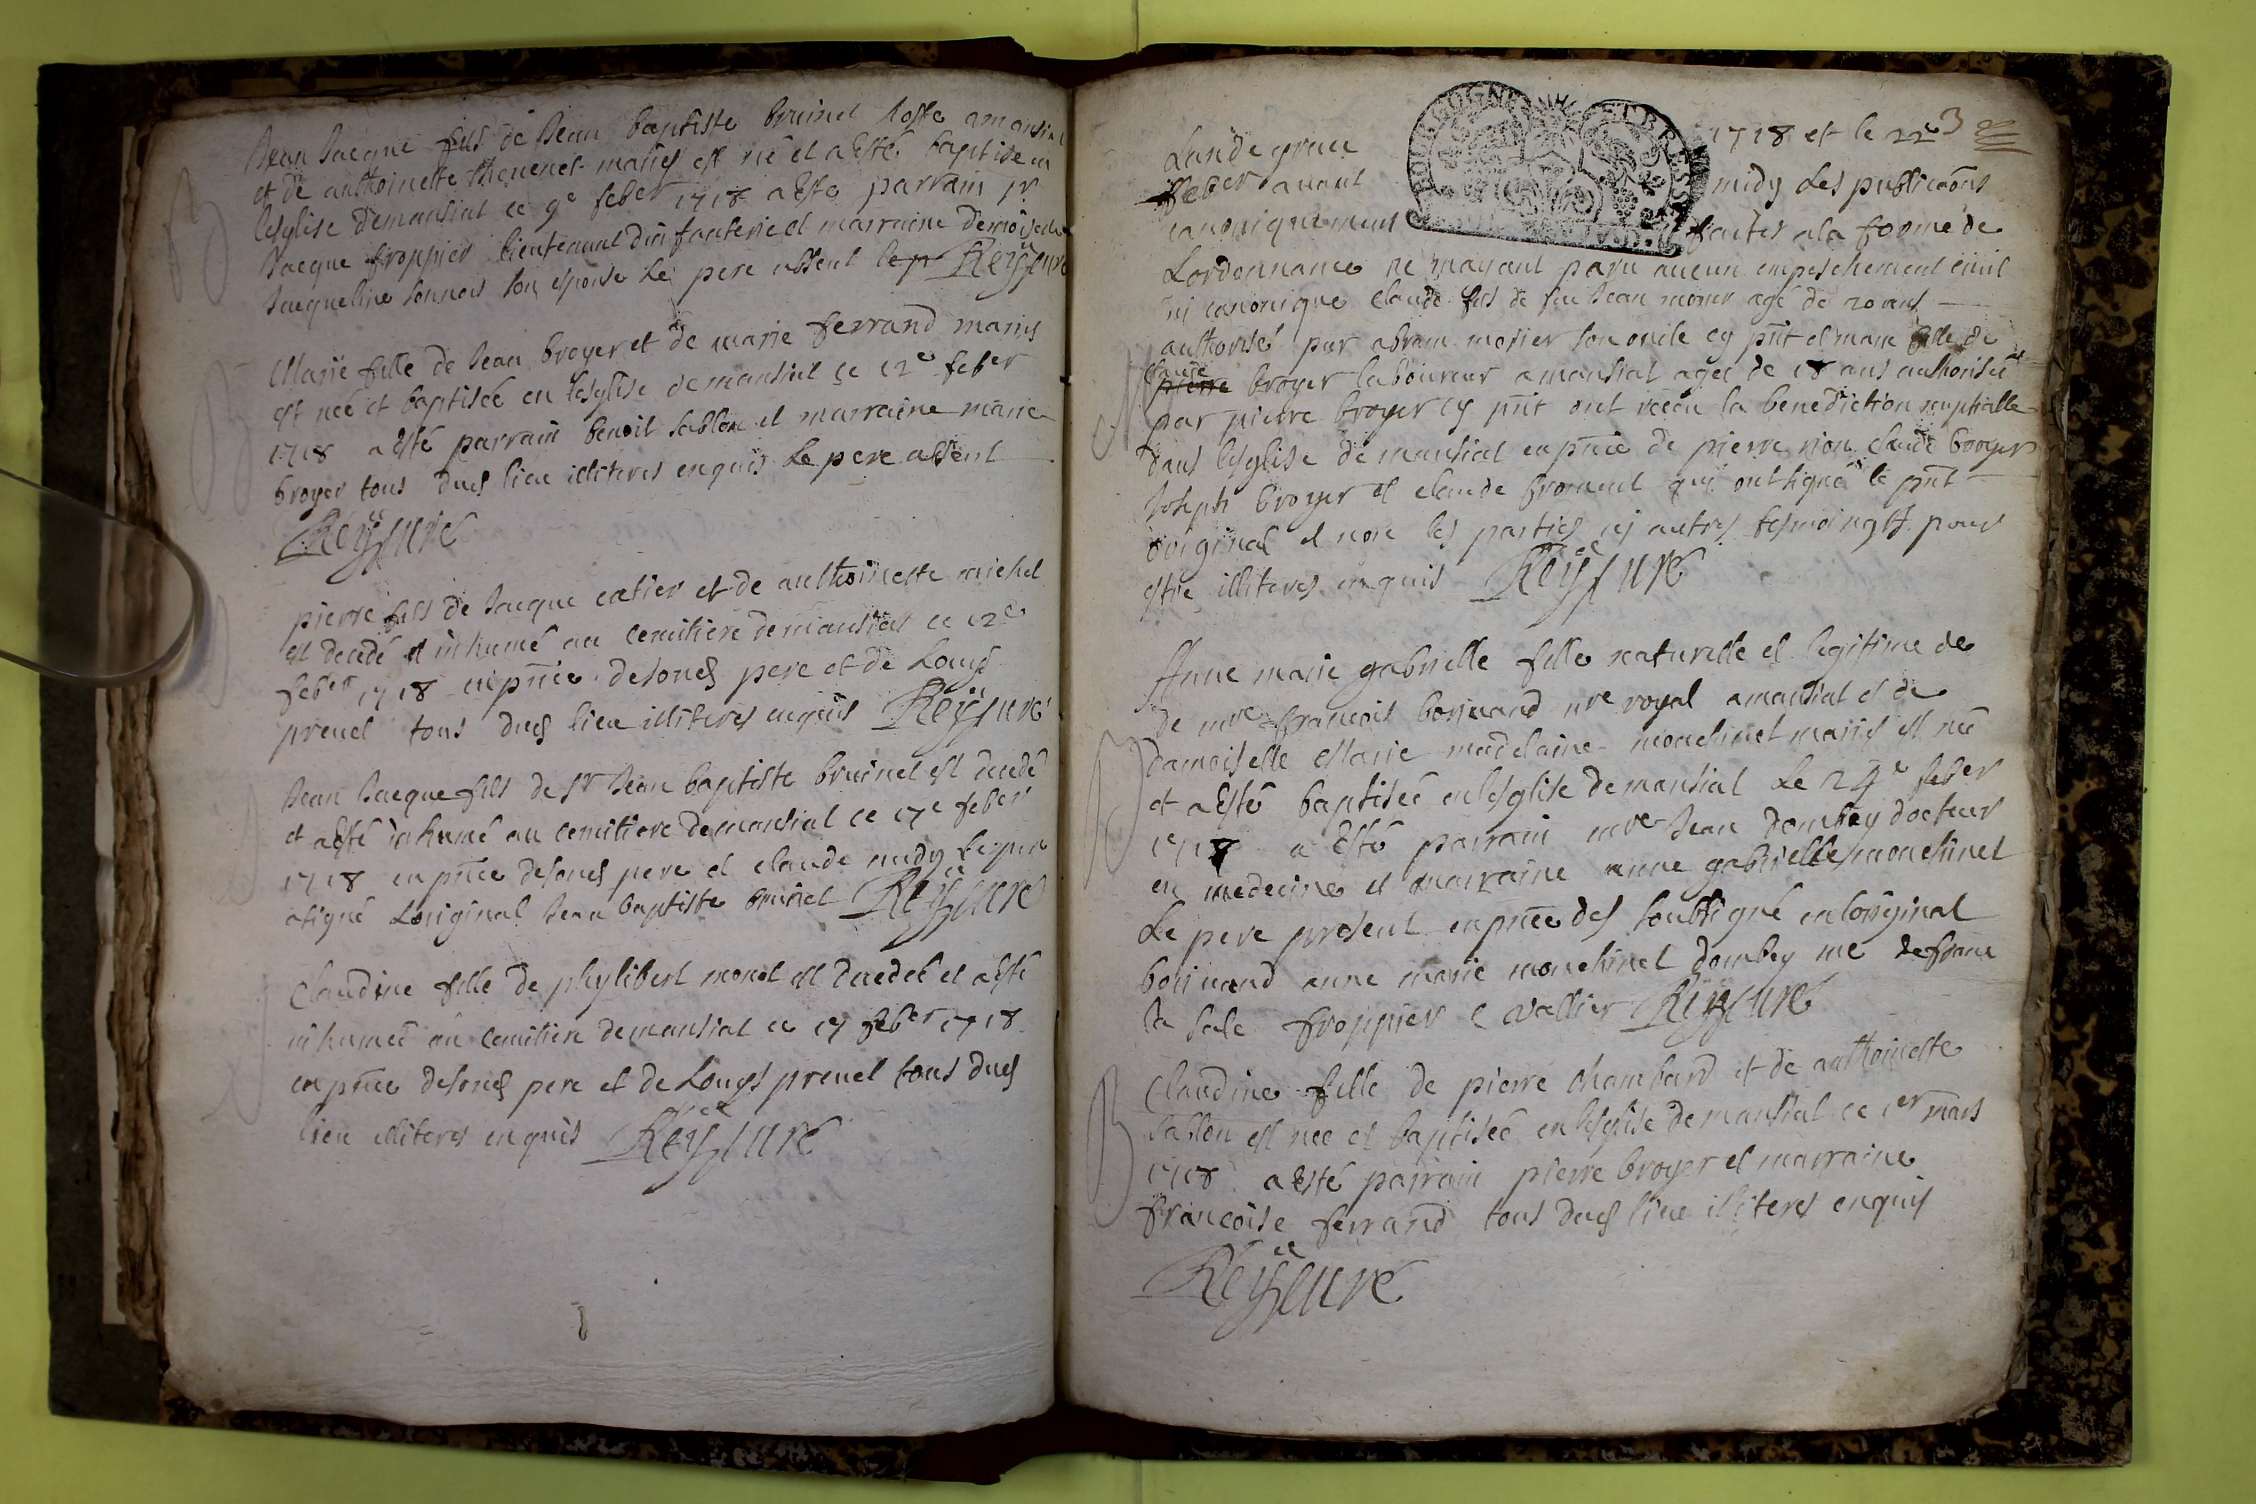 Jean Jacque fils de Jean baptiste bruinet hoste a mansiat
et de anthoinette thevenet mariés est né et a esté baptisé en
lesglise de mansiat ce 9e feber 1718 a esté parrain sr
Jacque froppier lieutenant dinfanterie et marraine demoiselle
Jacqueline sonnois son espouse le pere absent Reÿ curé
Marie fille de Jean broyer et de marie ferrand mariés
est neé et baptisée en lesglise de mansiat ce 12e feber
1718 a esté parrain benoit sablon et marraine marie
broyer tous dud lieu illiteres enquis le pere absent
Reÿ curé
pierre fils de Jacque catier et de anthoinette michel
est decedé et inhumé au cemitiere de mansiat ce 12e
feber 1718 en pnce de soned pere et de Louys
prevel tous dud lieu illiteres enquis Reÿ curé
Jean Jacque fils de sr Jean baptiste bruinet est decedé
et a esté inhumé au cemitiere de mansiat ce 17e feber
1718 en pnce de soned pere et claude le pere
a signé Loriginal Jean baptiste bruinet Reÿ curé
Claudine fille de phylibert morel est decedeé et a esté
inhumeé au cemitiere de mansiat ce 17 feber 1718
en pnce de soned pere et de Louys prevel tous dud
lieu illiteres enquis Reÿ curé
3
Lan de grace 1718 et le 22e
feber avant midy les publicaons
canoniquement faites a la forme de
Lordonnance ne mayant paru aucun empeschement civil
ni canonique claude fils de feu Jean morier agé de 20 ans
authorisé par abram morier son oncle cy pnt et marie fille de
claude
pierre broyer laboureur a mansiat ageé de 18 ans authoriseé
par pierre broyer cy pnt ont receu la benediction nuptialle
dans lesglise de mansiat en pnce de pierre rion claude broyer
Joseph broyer et claude froment qui ont signé le pnt
original et non les parties ni autres tesmoings pour
estre illiteres enquis Reÿ curé
Anne marie gabrielle fille naturelle et legitime de
de mre francois borjuand nre royal a mansiat et de
damoiselle Marie madelaine monchinet mariés est née
et a esté baptiseé en lesglise de mansiat Le 24e feber
1718 a esté parrain mre Jean dombey docteur
en medecine et marraine anne gabrielle monchinet
Le pere present en pnce des soubsigné en Loriginal
borjuand anne marie monchinet dombey me
la sale froppier Reÿ curé
Claudine fille de pierre chambard et de anthoinette
sablon est neé et baptiseé en lesglise de mansiat ce 1er mars
1718 a esté parrain pierre broyer et marraine
francoise ferrand tous dud lieu illiteres enquis
Reÿ curé